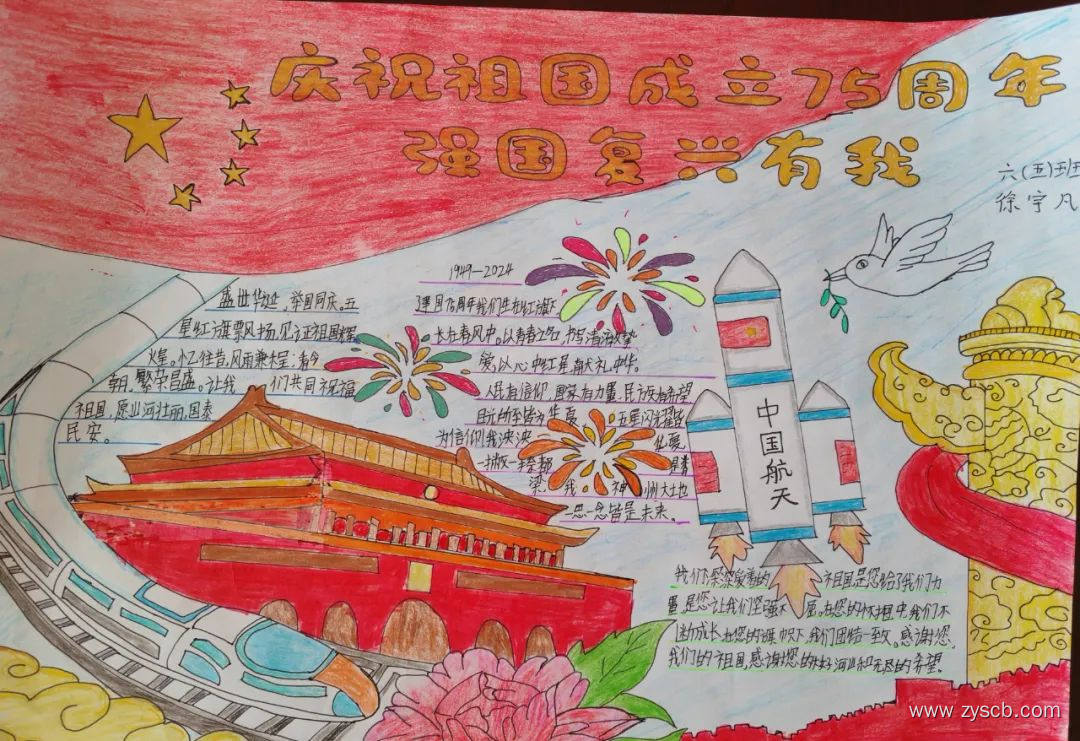 庆祝祖国成立75周年
强国复兴有我
六(五)班
徐宇凡
盛世华诞,举国同庆。五
星红旗飘风扬,见证祖国辉
煌。忆往昔,风雨兼程,看今
朝,繁荣昌盛。让我们共同祝福
祖国,愿山河壮丽,国泰
民安。
1949—2024
建国75周年我们生在红旗下
长在春风中。以青春之名,书
爱,以心中红星,献礼中华。
人民有信仰 国家有力量 民族有希望
目光所至皆为华夏,五星闪耀皆
为信仰!我泱泱华夏,
一撇一捺都是脊
梁,我神州大地
一思一念皆是未来。
中国航天
我们深深爱着的祖国,是您给了我们力
量,是您让我们坚强不屈。在您的怀抱中,我们不
断成长,在您的旗帜下,我们团结一致。感谢您,
我们的祖国,感谢您的大好河山和无尽的希望。
www.zyscb.com